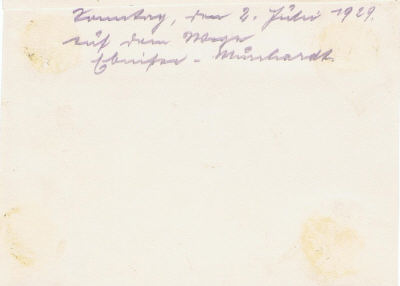 Sonntag, den 2. Jüli 1929.
auf dem Wege
Ebnisee - Murrhardt.